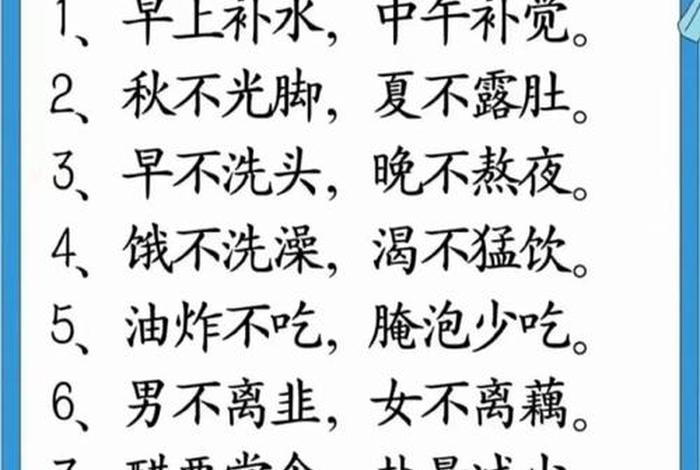 1、早上补水，中午补觉。
2、秋不光脚，夏不露肚。
3、早不洗头，晚不熬夜。
4、饿不洗澡，渴不猛饮。
5、油炸不吃，腌泡少吃。
6、男不离韭，女不离藕。